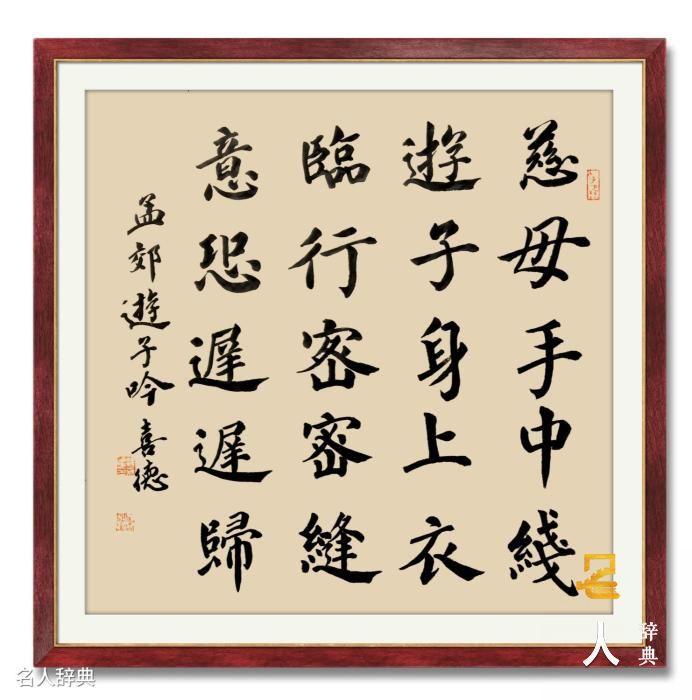 慈母手中綫
遊子身上衣
臨行密密縫
意恐遲遲歸
孟郊遊子吟 喜德
名人辞典
人
辞典